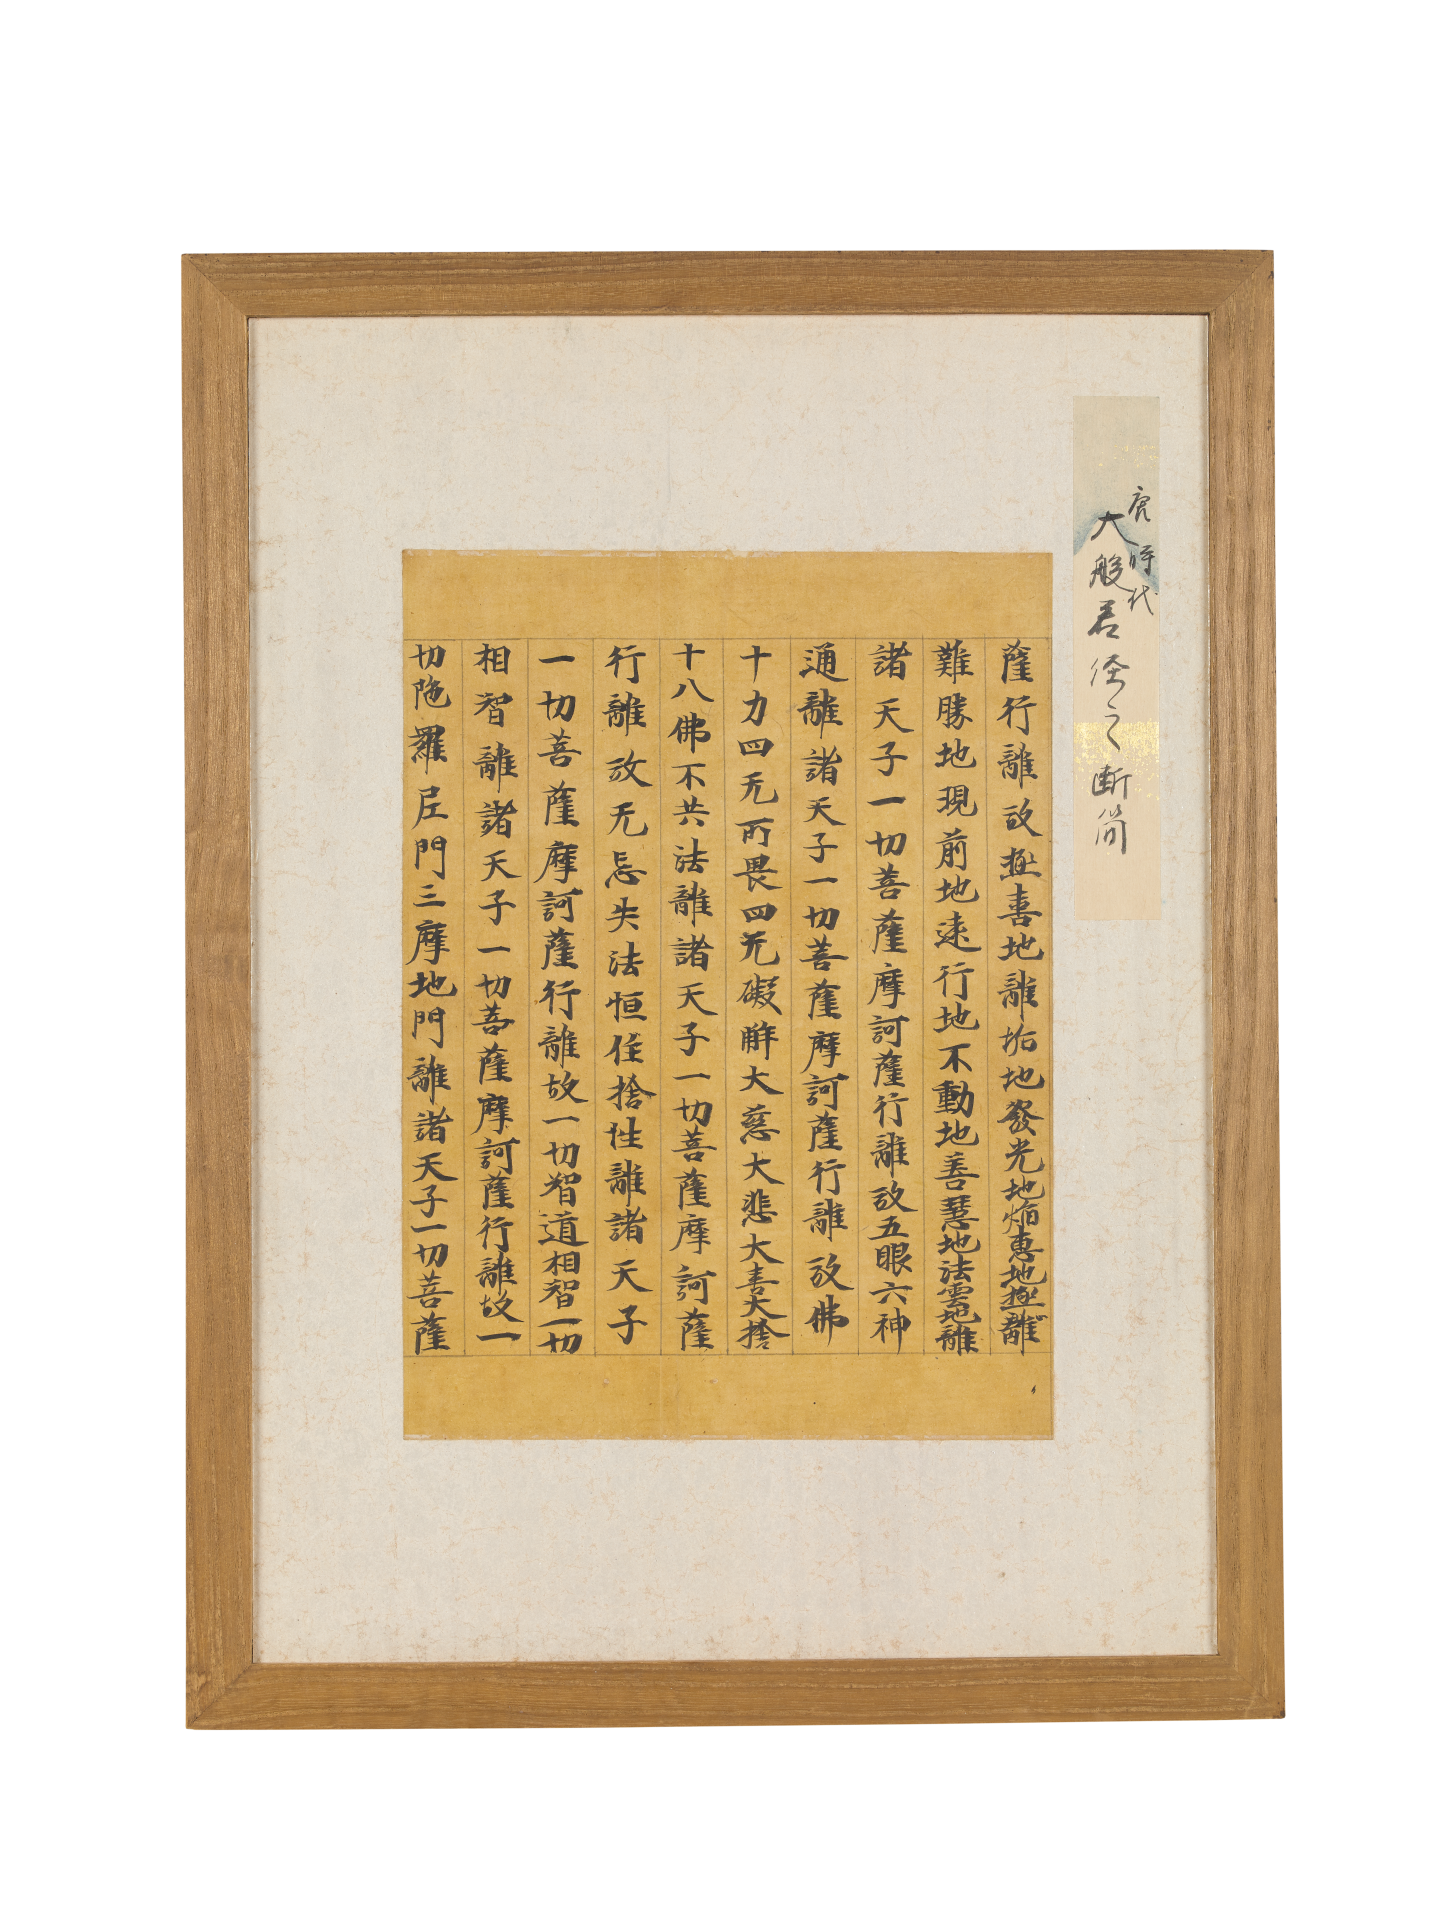 唐時代
大般若経之断簡
薩行離故極喜地離垢地發光地焔惠地極離
難勝地現前地遠行地不動地善慧地法雲地離
諸天子一切菩薩摩訶薩行離故五眼六神
通離諸天子一切菩薩摩訶薩行離故佛
十力四无所畏四无礙解大慈大悲大喜大捨
十八佛不共法離諸天子一切菩薩摩訶薩
行離故无忘失法恒住捨性離諸天子
一切菩薩摩訶薩行離故一切智道相智一切
相智離諸天子一切菩薩摩訶薩行離故一
切陁羅尼門三摩地門離諸天子一切菩薩